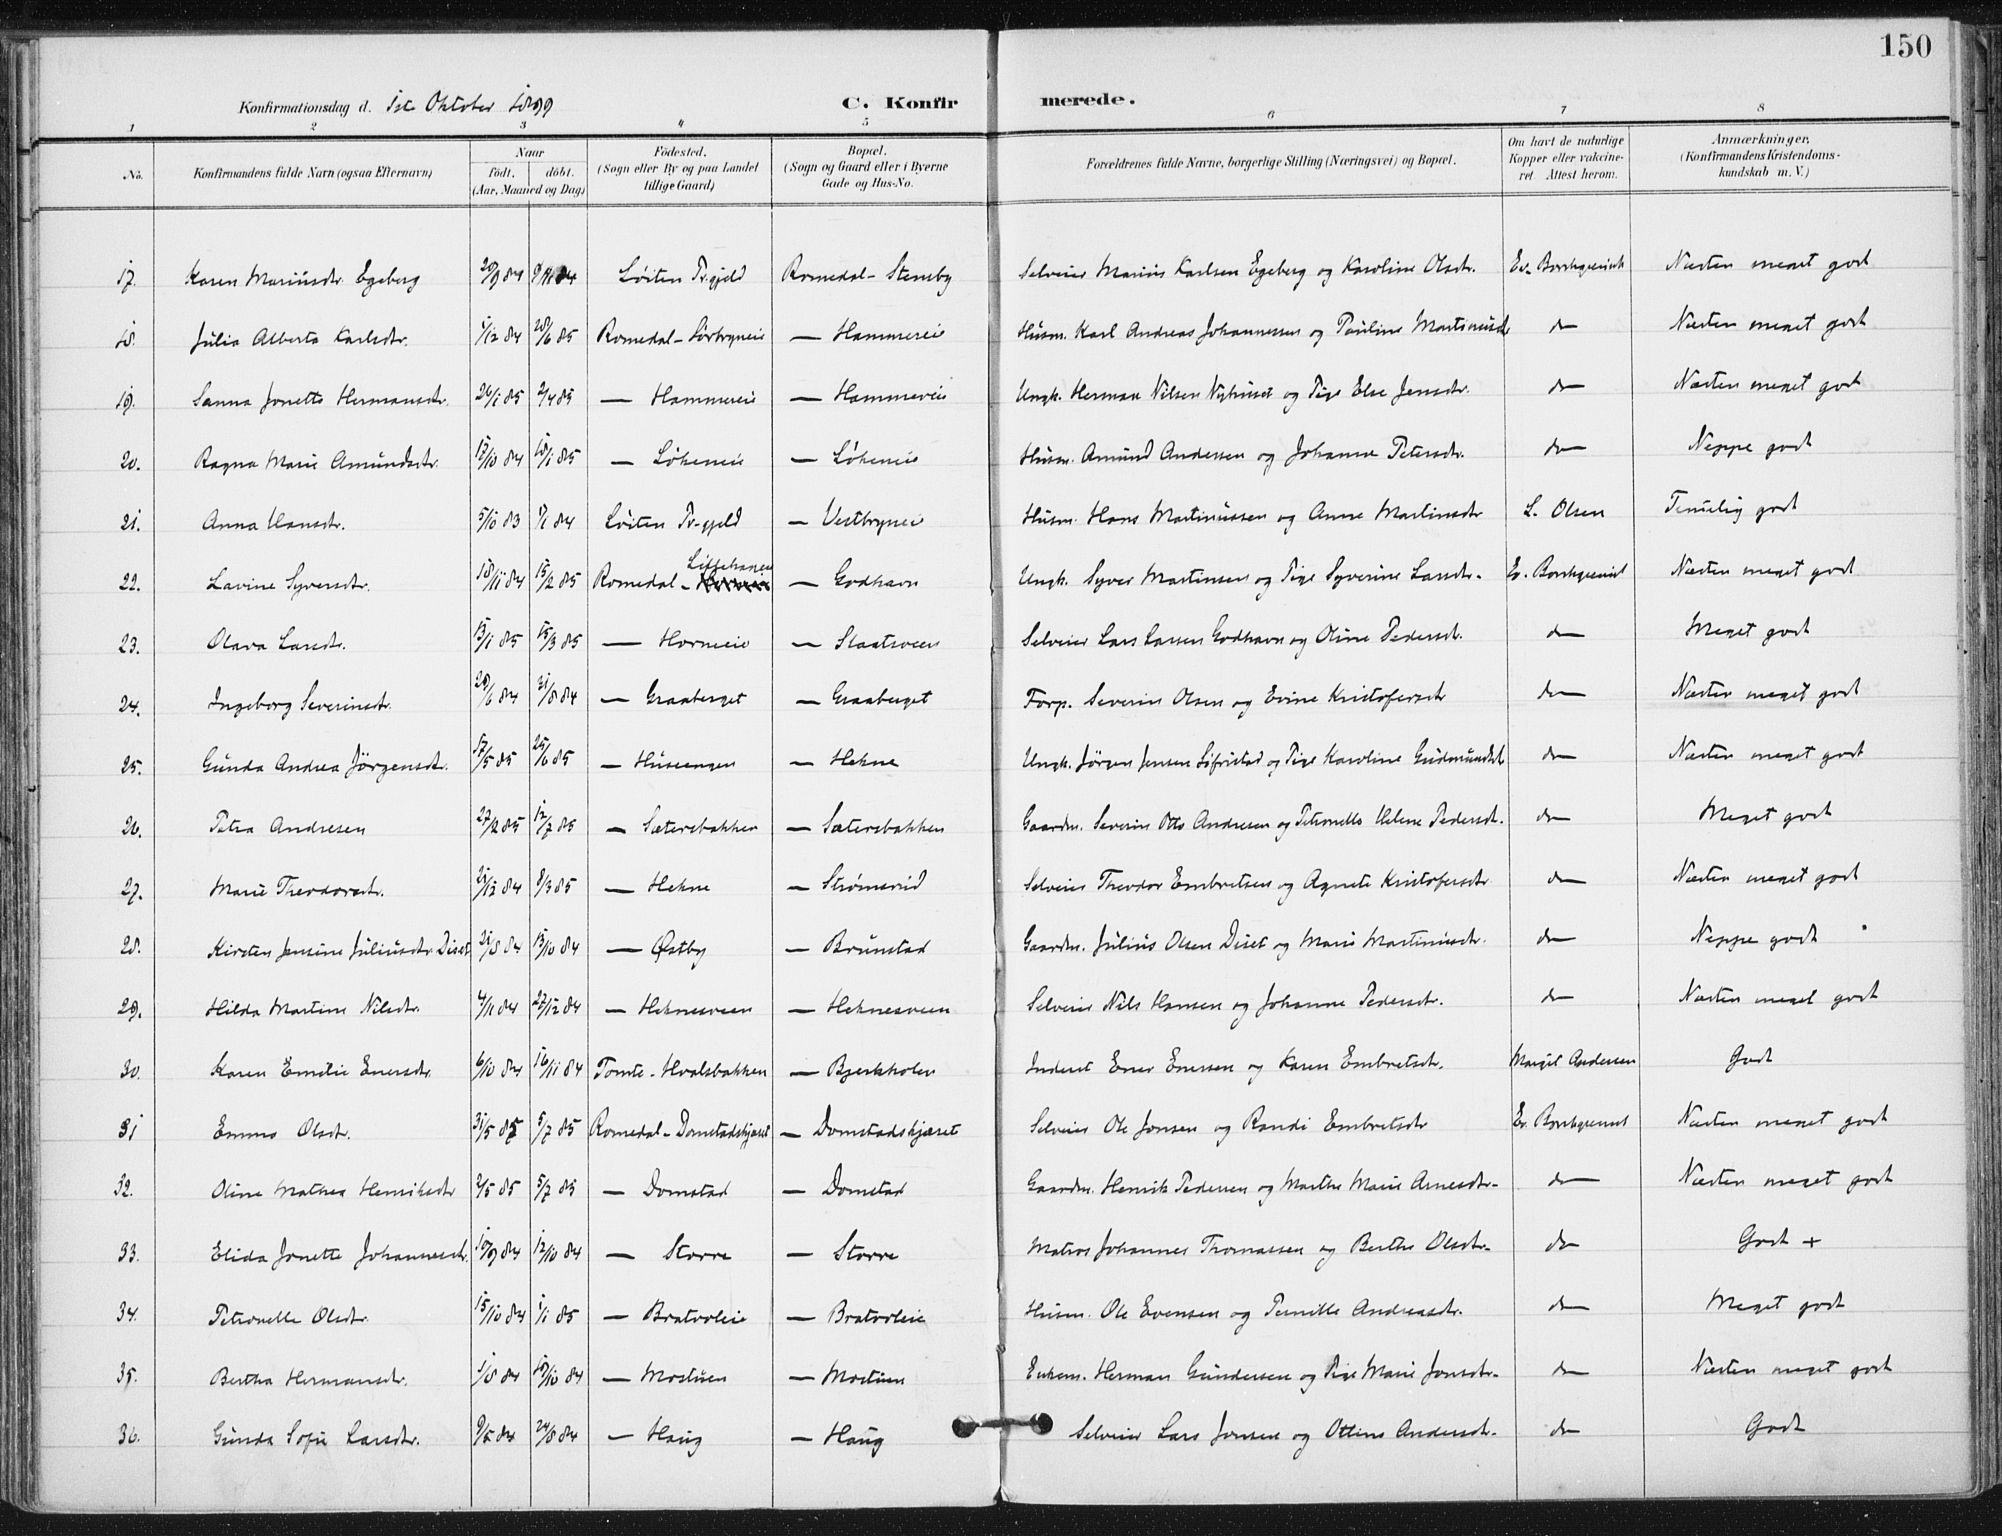 150
Konfirmationsdag d. 1ste Oktober 1899 C. Konfirmerede.
1 2 3 4 5 6 7 8
No. Konfirmandens fulde Navn (ogsaa Efternavn) Naar födt. döbt. (Aar, Maaned og Dag) Födested. (Sogn eller By og paa Landet tillige Gaard) Bopæl. (Sogn og Gaard eller i Byerne Gade og Hus-No. Forældrenes fulde Navne, borgerlige Stilling (Næringsvei) og Bopæl. Om havt de naturlige Kopper eller vakcineret. Attest herom. Anmærkninger. (Konfirmandens Kristendomskundskab m. V.)
17. Karen Mariusdtr. Egeberg 20/9 84 9/11 84 Løiten Pr.gjeld Romedal - Stensby Selveier Marius Karlsen Egeberg og Karoline Olsdtr. Ev. Borchgrevink Næsten meget godt
18. Julia Alberta Karlsdtr. 1/12 84 28/6 85 Romedal - Sörbryneie — Hammereie Husm. Karl Andreas Johannessen og Pauline Martinusdtr do Næsten meget godt
19. Sanna Jonette Hermansdtr. 26/1 85 2/4 85 — Hammereie — Hammereie Ungk. Herman Nilsen Nyhuset og Pige Else Jensdtr. do Næsten meget godt
20. Ragna Marie Amundsdtr. 12/10 84 18/1 85 — Løkeneie — Løkeneie Husm. Amund Andersen og Johanne Petersdtr. do Neppe godt
21. Anna Hansdtr. 5/10 83 1/1 84 Løiten Pr-gjeld — Vestbryneie Husm. Hans Martinussen og Anne Martinsdtr L. Olsen Temelig godt
22. Lavine Syversdtr. 18/11 84 15/2 85 Romedal - — Godhavn Ungk. Syver Martinsen og Pige Syverine Larsdtr. Ev. Borchgrevink Næsten meget godt
23. Olava Larsdtr. 15/1 85 15/3 85 — Horneie — Slaatsveen Selveier Lars Larsen Godhavn og Oline Pedersdtr. do Meget godt
24. Ingeborg Severinsdtr. 28/6 84 31/8 84 — Graaberget — Graaberget Forp. Severin Olsen og Evine Kristofersdtr do Næsten meget godt
25. Gunda Andrea Jörgensdtr. 17/5 85 25/6 85 — Huseengen — Hekne Ungk. Jörgen Jensen Löfristad og Pige Karoline Gudmundsdtr do Næsten meget godt
26. Petra Andresen 27/2 85 12/7 85 — Sætersbakken — Sætersbakken Gaardm. Severin Otto Andresen og Petronelle Helene Pedersdtr. do Meget godt
27. Marie Theodorsdtr. 21/12 84 8/3 85 — Hekne — Strömsrud Selveier Theodor Embretsen og Agnete Kristofersdtr do Næsten meget godt
28. Kirsten Jensine Juliusdtr. Diset 21/8 84 13/10 84 — Østby — Brunstad Gaardm. Julius Olsen Diset og Marie Martinusdtr. do Neppe godt
29. Hilda Martine Nilsdtr. 4/11 84 27/12 84 — Heknesveen — Heknesveen Selveier Nils Hansen og Johanne Pedersdtr. do Næsten meget godt
30. Karen Emilie Enersdtr. 6/10 84 16/11 84 Tomte - Hvalsbakken — Bjerkholen Inderst Ener Enersen og Karen Embretsdtr. Margit Andersen Godt
31 Emma Olsdtr. 31/5 85 5/7 85 Romedal - Domstadskjæret — Domstadskjæret Selveier Ole Jonsen og Randi Embretsdtr Ev. Borchgrevink Næsten meget godt
32. Oline Mathea Henriksdtr 2/5 85 5/7 85 — Domstad — Domstad Gaardm. Henrik Pedersen og Marthe Marie Arnesdtr. do Næsten meget godt
33. Elida Jonette Johannesdtr. 10/9 84 12/10 84 — Storre — Storre Matros Johannes Thomassen og Berthe Olsdtr. do Godt +
34. Petronelle Olsdtr. 15/10 84 1/1 85 — Bratvoleie — Bratvoleie Husm. Ole Evensen og Pernille Andreasdtr. do Meget godt
35. Bertha Hermansdtr. 1/8 84 19/10 84 — Mostuen — Mostuen Enkem. Herman Gundersen og Pige Marie Jonsdtr. do Næsten meget godt
36. Gunda Sofie Larsdtr. 9/5 84 24/8 84 — Haug — Haug Selveier Lars Jonsen og Ottine Andersdtr. do Godt